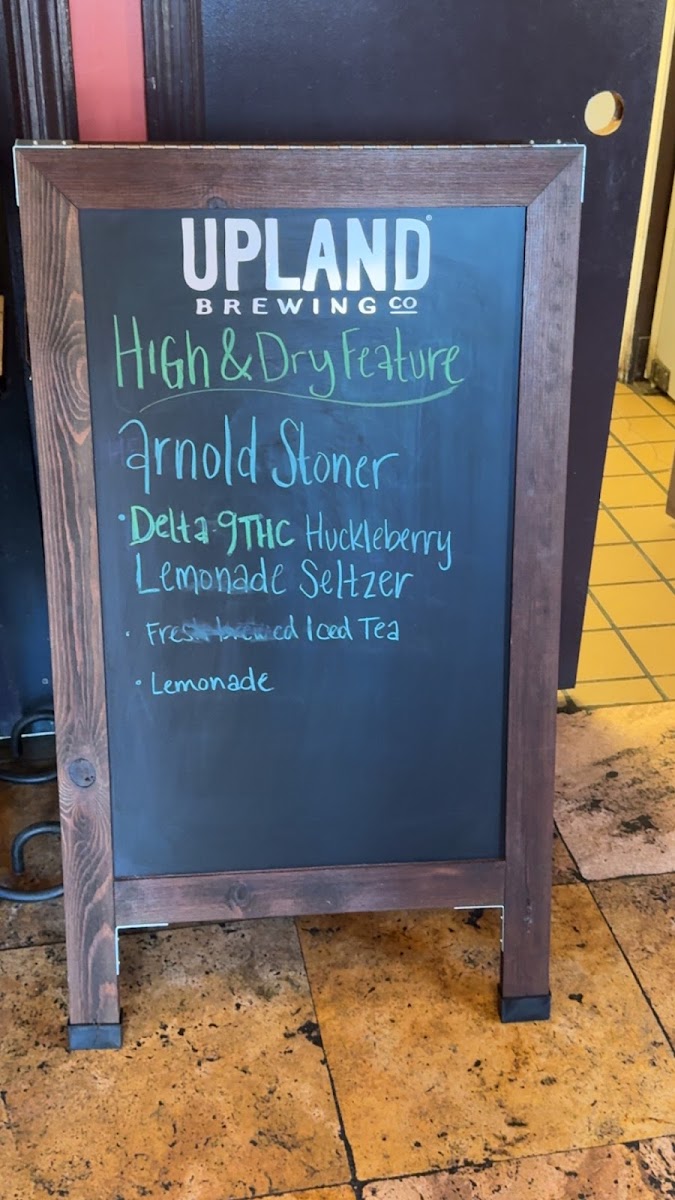 UPLAND
BREWING CO
HIGH & Dry Feature
arnold Stoner
• Delta 9 THC Huckleberry
Lemonade Seltzer
• Fresh brewed Iced Tea
• Lemonade